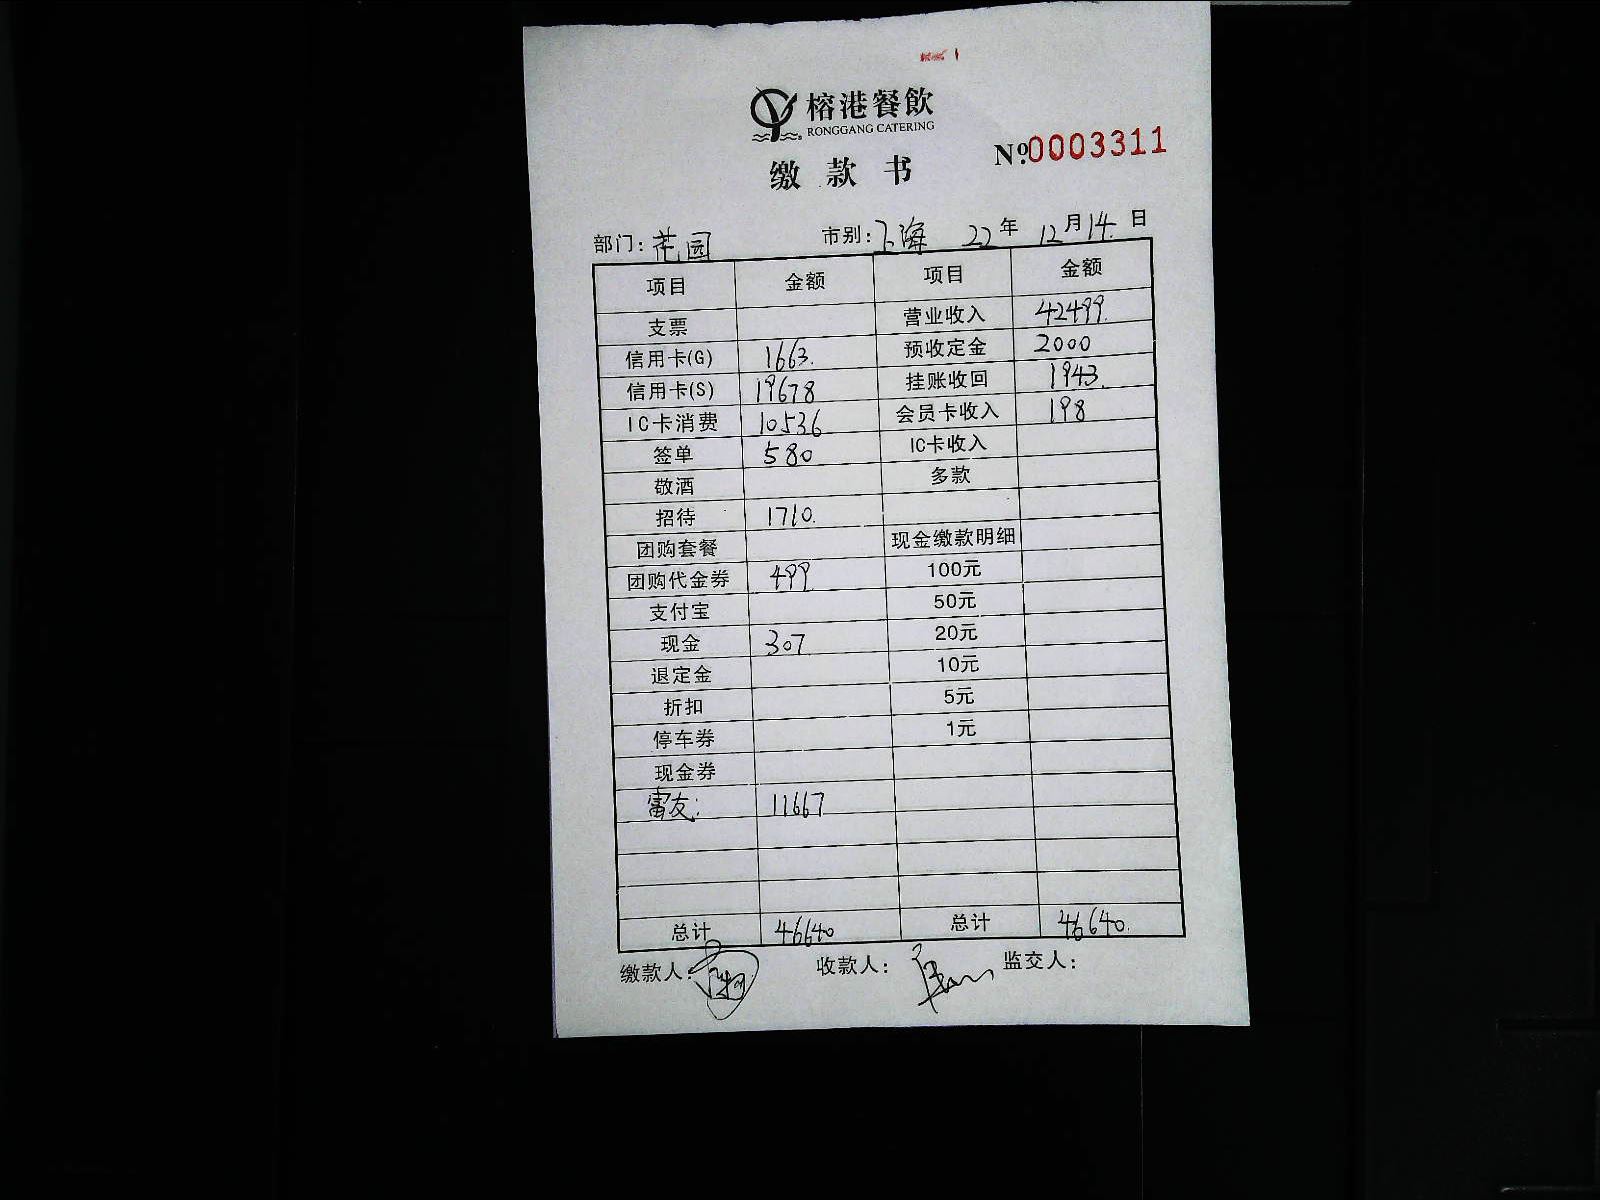 榕港餐飲
RONGGANG CATERING
缴款书
№0003311
部门:花园 市别:上海 22年12月14日
项目 金额 项目 金额
支票 营业收入 42499.
信用卡(G) 1663. 预收定金 2000
信用卡(S) 19678 挂账收回 1943.
IC卡消费 10536 会员卡收入 198
签单 580 IC卡收入
敬酒 多款
招待 1710.
团购套餐 现金缴款明细
团购代金券 499 100元
支付宝 50元
现金 307 20元
退定金 10元
折扣 5元
停车券 1元
现金券
雷友: 11667
总计 46640 总计 46640.
缴款人: 收款人: 监交人: